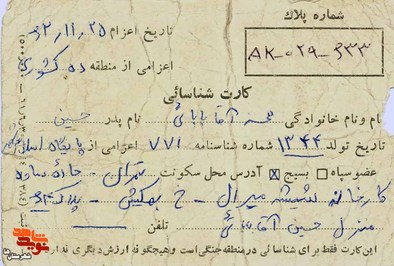 شماره پلاك
AK-029-633
تاریخ اعزام 62/11/25
اعزامی از منطقه ده کشوری
کارت شناسائی
نام ونام خانوادگی محمد آقا بابائی نام پدر حسین
تاریخ تولد 1344 شماره شناسنامه 771 اعزامی از پایگاه
عضوسپاه بسیج آدرس محل سکونت تهران - جاده ساوه
کارخانه شیشه میرال - خ - پلاک
منزل حسین آقا تلفن
این کارت فقط برای شناسائی درمنطقه جنگی است وهیچگونه ارزش دیگری ندارد